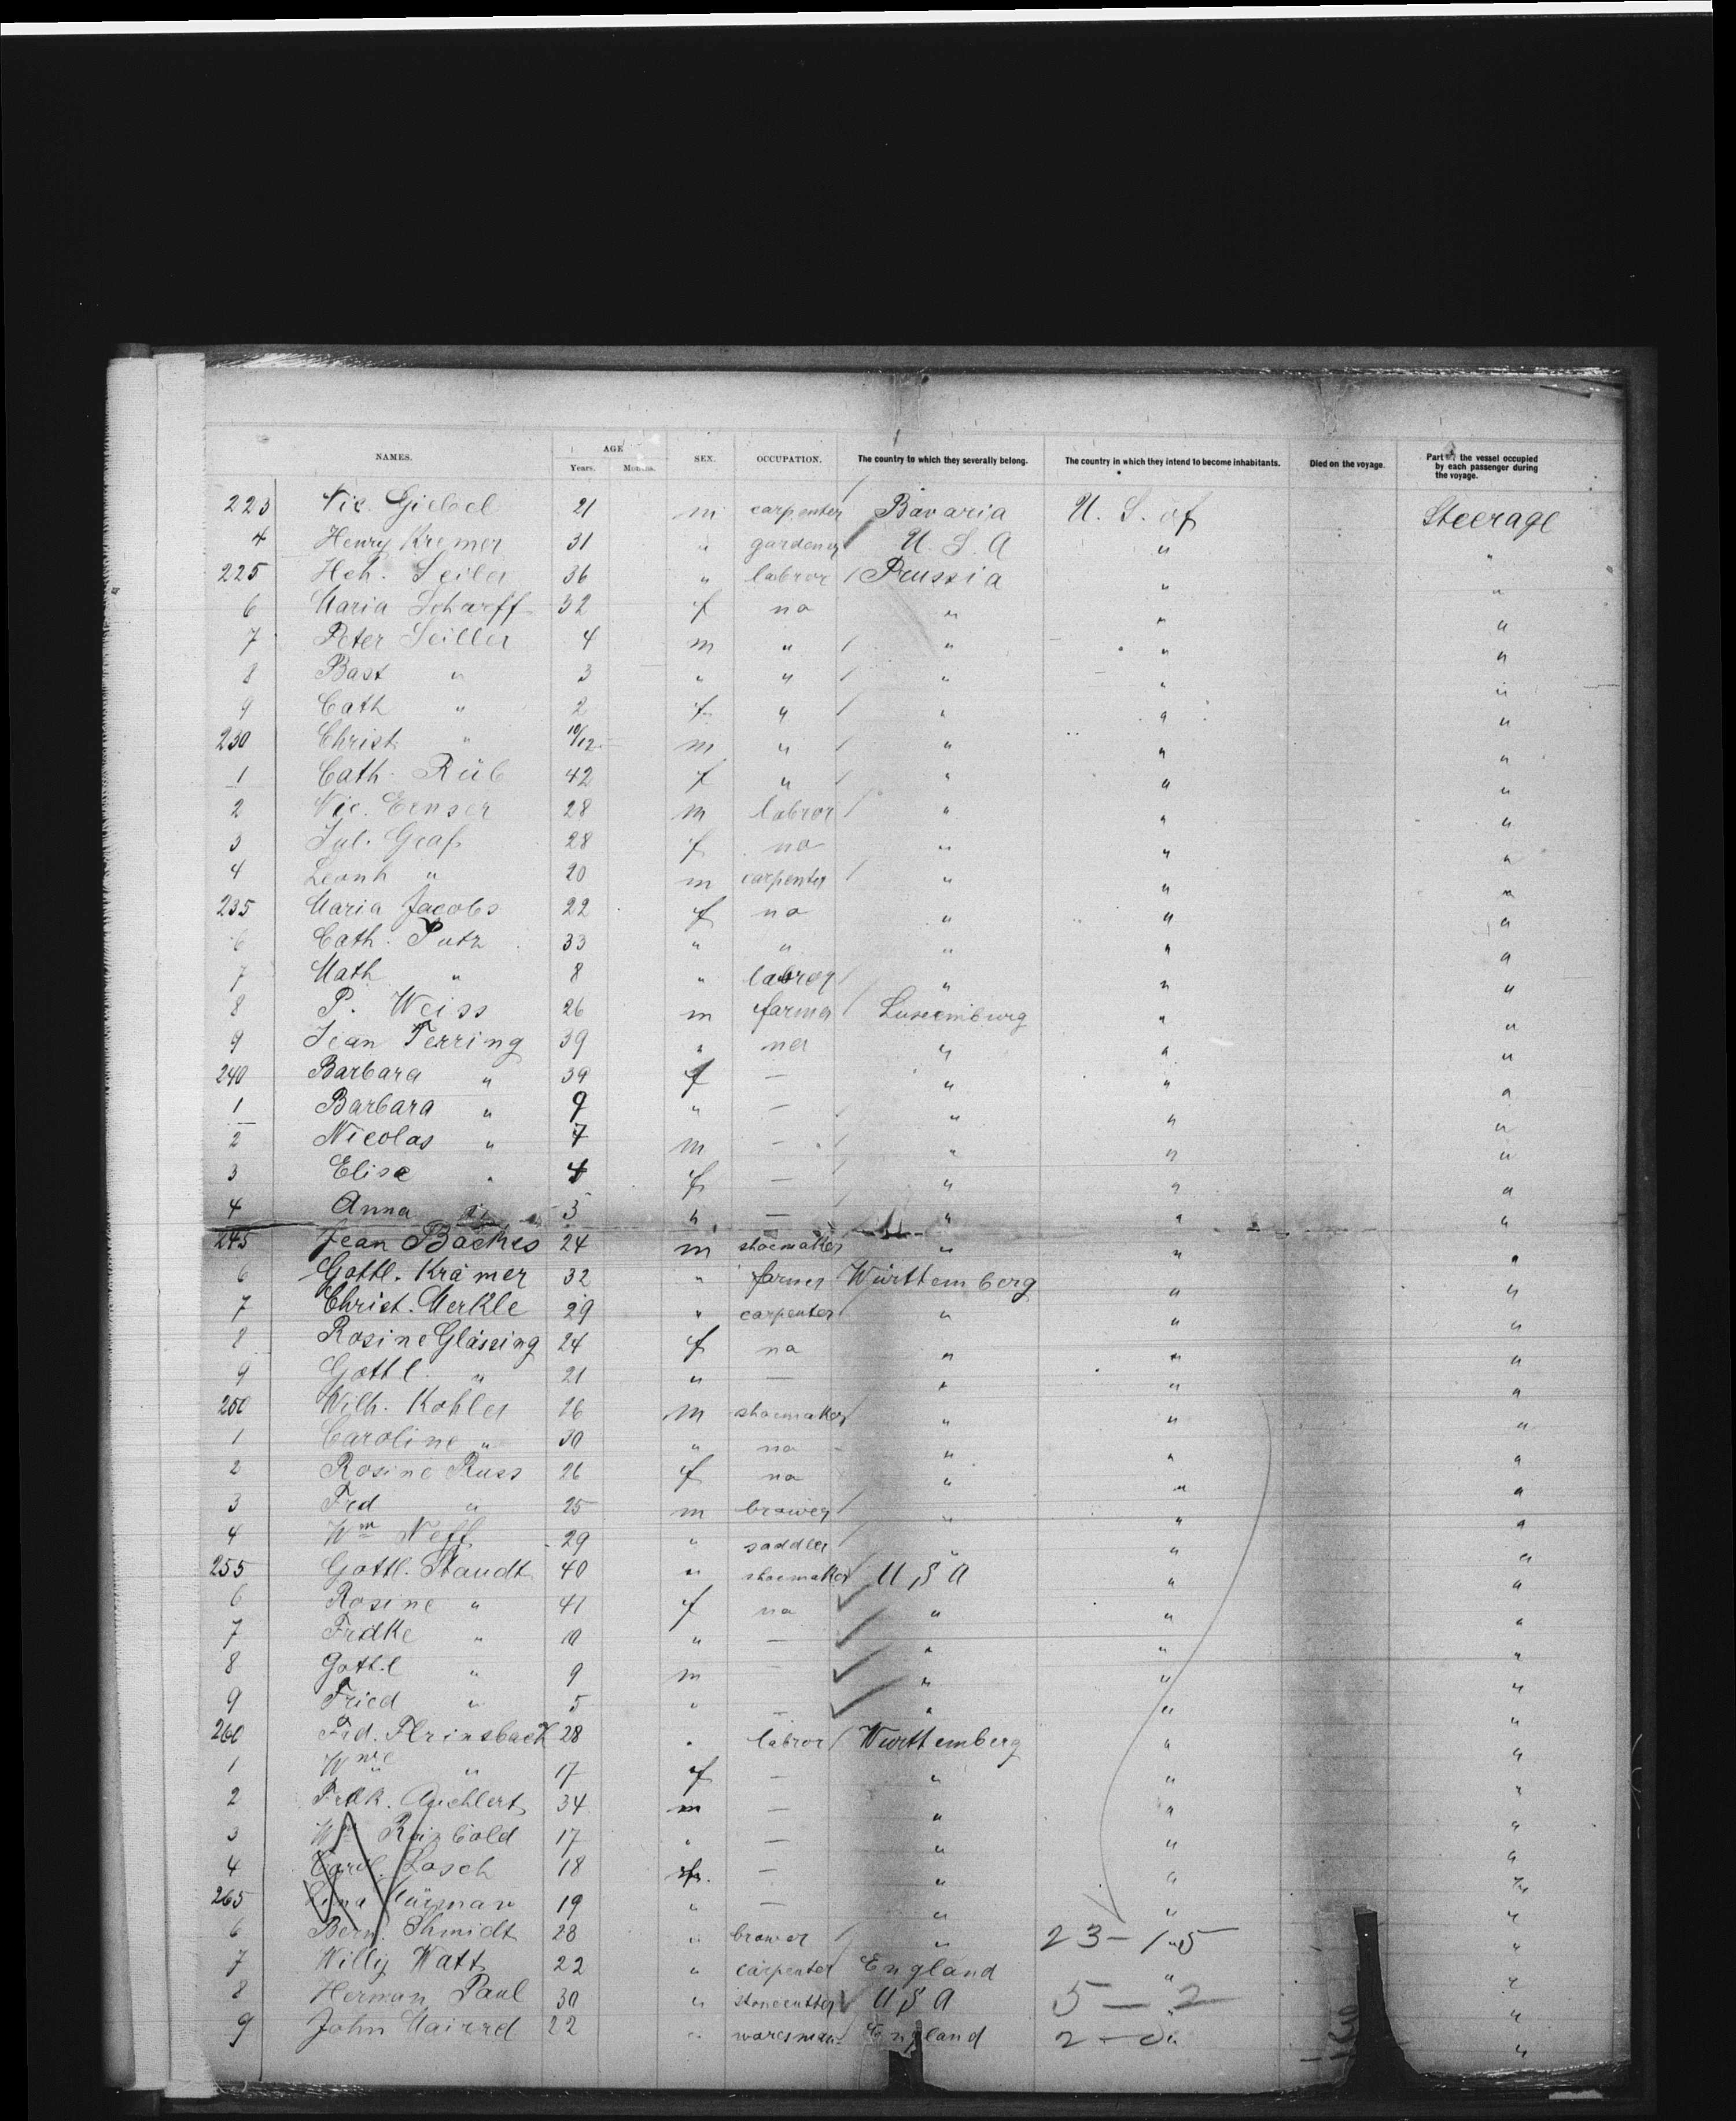 NAMES. AGE Years. Months. SEX. OCCUPATION. The country to which they severally belong. The country in which they intend to become inhabitants. Died on the voyage. Part of the vessel occupied by each passenger during the voyage.
223 Nic. Giebel 21 m carpenter Bavaria U. S. of Steerage
4 Henry Kremer 31 " gardener U. S. A " "
225 Hch. Seiler 36 " labror Prussia " "
6 Maria Scharff 32 f no " " "
7 Peter Seiller 4 m " " " "
8 Bast " 3 " " " " "
9 Cath " 2 f " " " "
230 Christ " 10/12 m " " " "
1 Cath. Rüb 42 f " " " "
2 Nic. Ernser 28 m labror " " "
3 Jul. Graf 28 f no " " "
4 Leonh " 20 m carpenter " " "
235 Maria Jacobs 22 f no " " "
6 Cath. Putz 33 " " " " "
7 Math " 8 " labror " " "
8 P. Weiss 26 m farmer Luxemburg " "
9 Jean Ferring 39 " " " "
240 Barbara " 39 f — " " "
1 Barbara " 9 " — " " "
2 Nicolas " 7 m — " " "
3 Elise " 4 f — " " "
4 Anna " 3 " — " " "
245 Jean Backes 24 m shoemaker " " "
6 Gottl. Krämer 32 " farmer Württemberg " "
7 Christ. Merkle 29 " carpenter " " "
8 Rosine Glässing 24 f no " " "
9 Gottl. " 21 " — " " "
250 Wilh. Kohler 26 m shoemaker " " "
1 Caroline " 30 " no " " "
2 Rosine Russ 26 f no " " "
3 Frd " 25 m brower " " "
4 Wm Neff 29 " saddler " " "
255 Gottl. Staudt 40 " shoemaker U S A " "
6 Rosine " 41 f no " " "
7 Frdke " 10 " — " " "
8 Gottl " 9 m — " " "
9 Fried " 5 " — " " "
260 Frd. Flrinsbach 28 " labror Wurttemberg " "
1 Wme " 17 f — " " "
2 Frdk. 34 m — " " "
3 Wm Reinbold 17 " — " " "
4 Carol. Lasch 18 f — " " "
265 19 " — " " "
6 Bern. Shmidt 28 " brower " 23 – 1 "
7 Willy Watt 22 " carpenter England " "
8 Herman Paul 30 " stonecutter U S A 5 — 2 "
9 John 22 " England 2 — 0 "